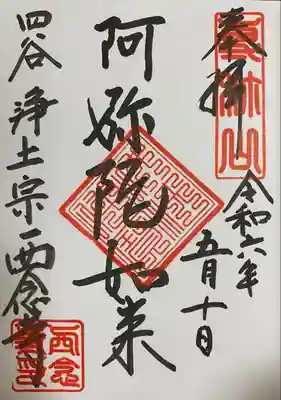 奉拝
令和六年
五月十日
阿弥陀如来
四谷 浄土宗 西念寺
西念